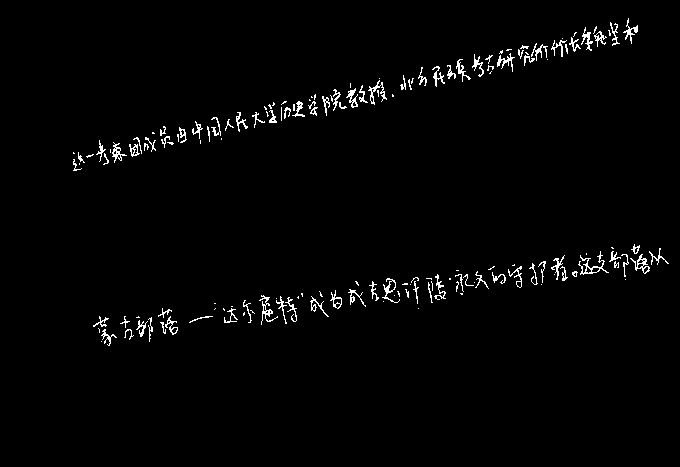 这一考察团成员由中国人民大学历史学院教授、北方民族考古研究所所长魏坚和
蒙古部落—“达尔扈特”成为成吉思汗陵永久的守护者。这支部落从